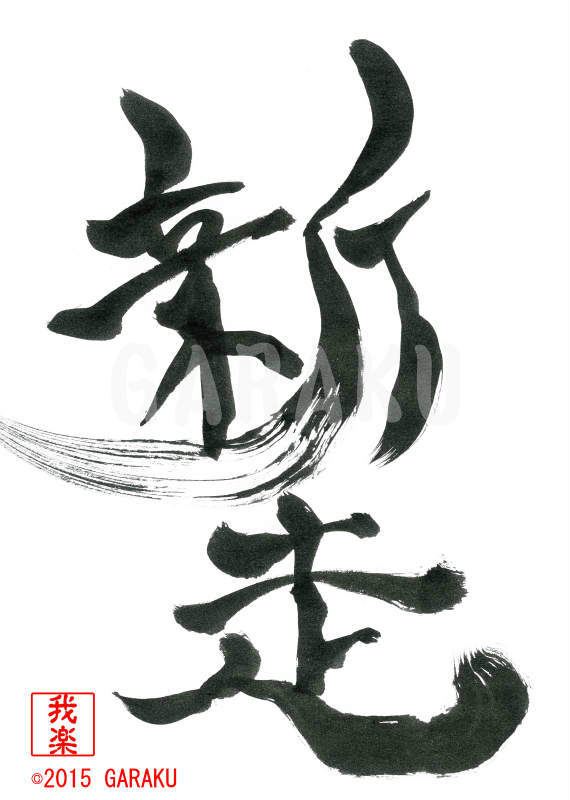 新
走
GARAKU
我
楽
©2015 GARAKU